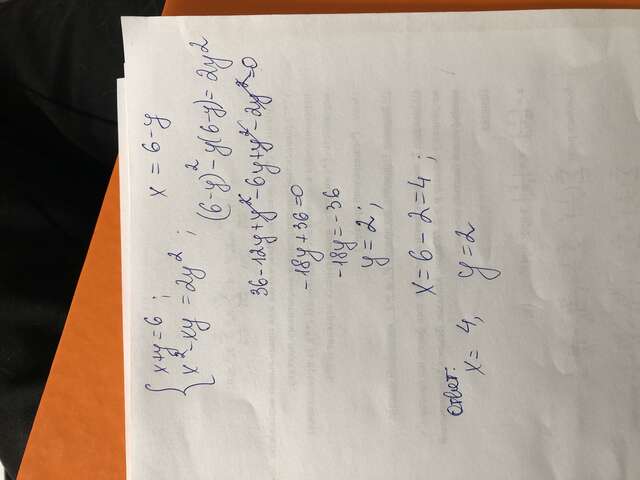 { x+y=6 ; x = 6-y
x² - xy = 2y² ; (6-y)² - y(6-y) = 2y²
36-12y+y²-6y+y²-2y²=0
-18y+36=0
-18y=-36
y=2;
x=6-2=4;
Ответ:
x=4, y=2